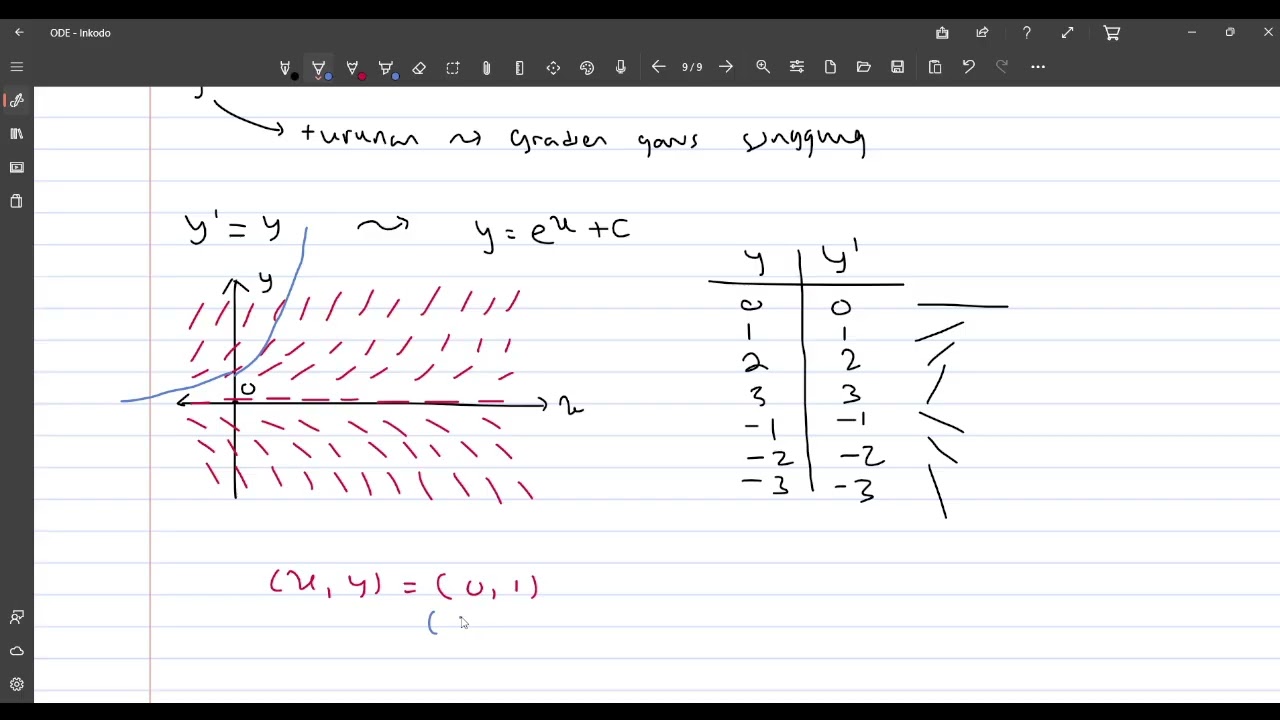 ODE - Inkodo
9/9
turunan ~> gradien garis singgung
y' = y ~> y = eˣ + C
y
0
x
y y'
0 0
1 1
2 2
3 3
-1 -1
-2 -2
-3 -3
(x, y) = (0, 1)
(